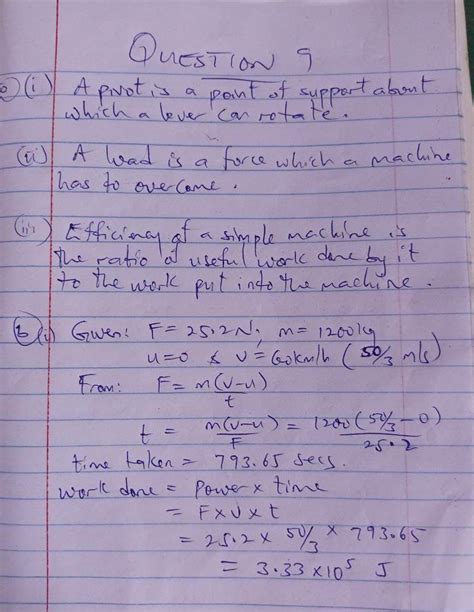 QUESTION 9
a (i) A pivot is a point of support about
which a lever can rotate.
(ii) A load is a force which a machine
has to overcome.
(iii) Efficiency of a simple machine is
the ratio of useful work done by it
to the work put into the machine.
b (i) Given: F = 25.2N, m = 1200kg
u=0 & v = 60km/h (50/3 m/s)
From: F = m(v-u)/t
t = m(v-u)/F = 1200(50/3 - 0)/25.2
time taken = 793.65 secs.
work done = power x time
= F x v x t
= 25.2 x 50/3 x 793.65
= 3.33 x 10⁵ J